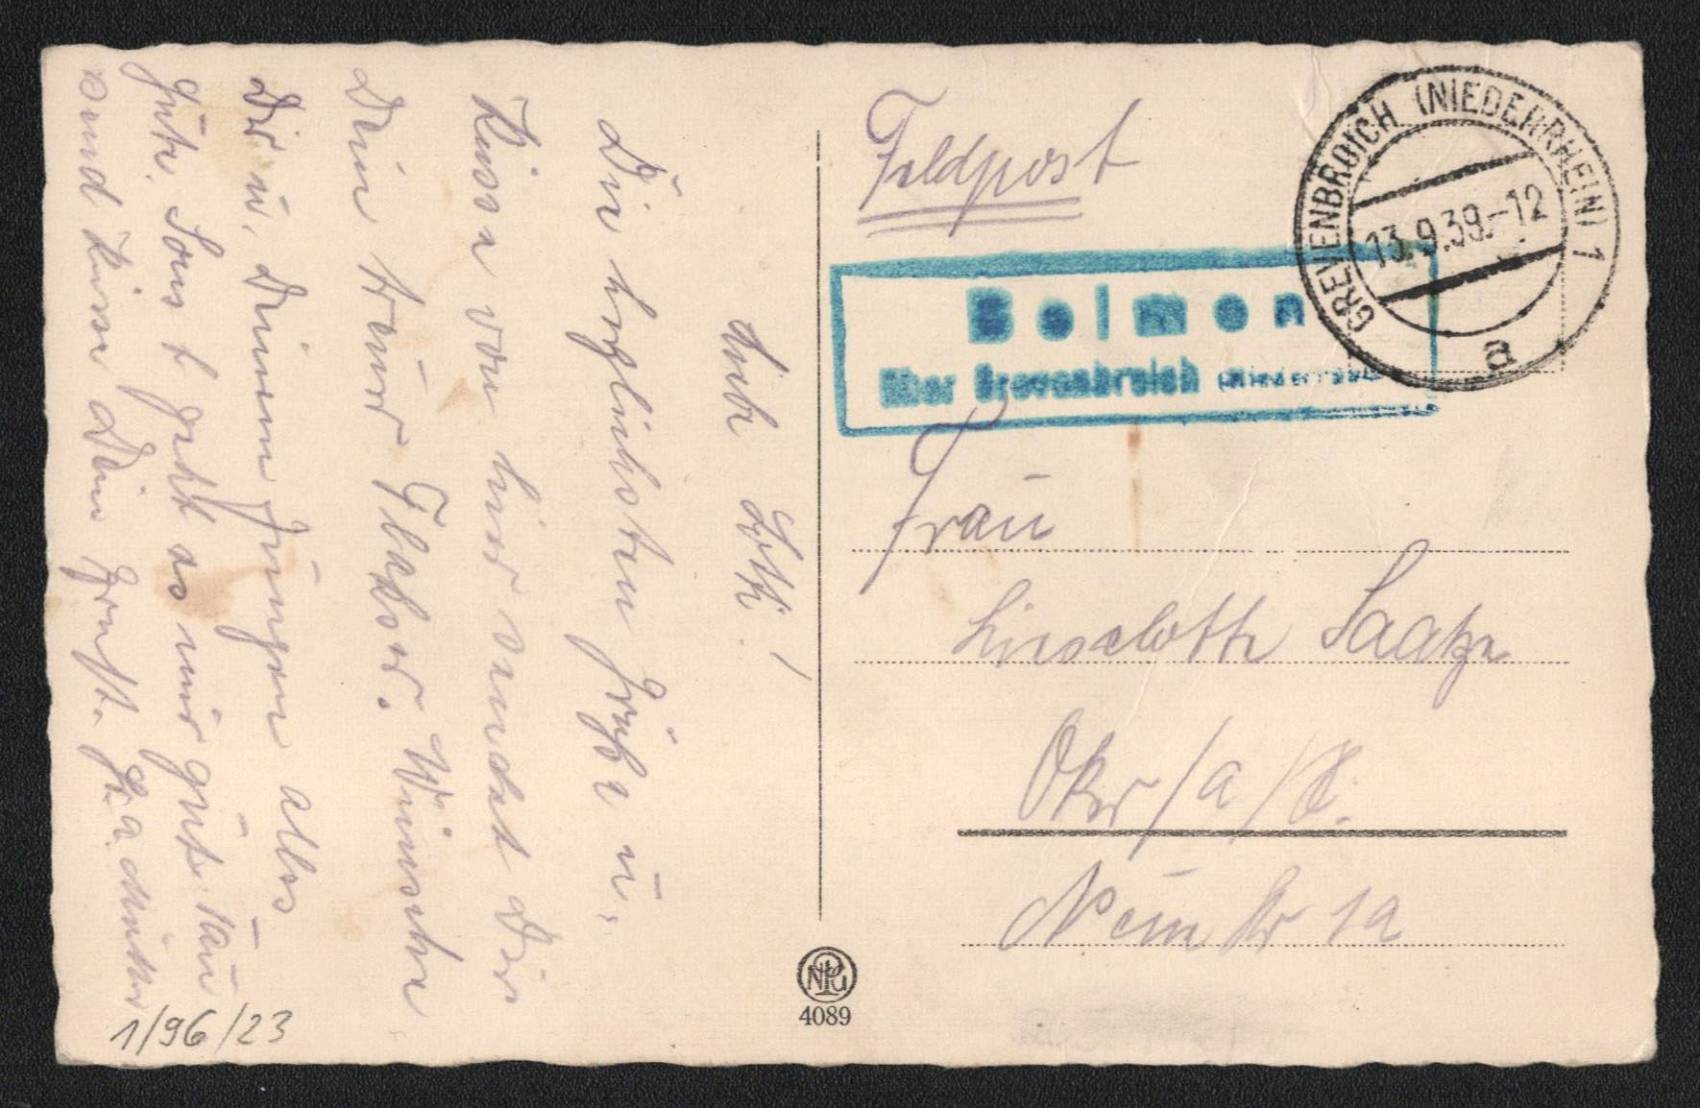 Feldpost
GREVENBROICH (NIEDERRHEIN) 1
13.9.39.-12
a
Belmen
über Grevenbroich (Niederrhein)
Frau
Lieselotte Saatze
Oker/a/H.
Neue Str 1a
Liebe Lotte!
Die herzlichsten Grüße u.
Küsse von hier sendet Dir
Dein treuer
Wünsche
Dir u. Deinem Jungen alles
gute. Sonst geht es mir gut.
und Küsse Dein
NPG
4089
1/96/23